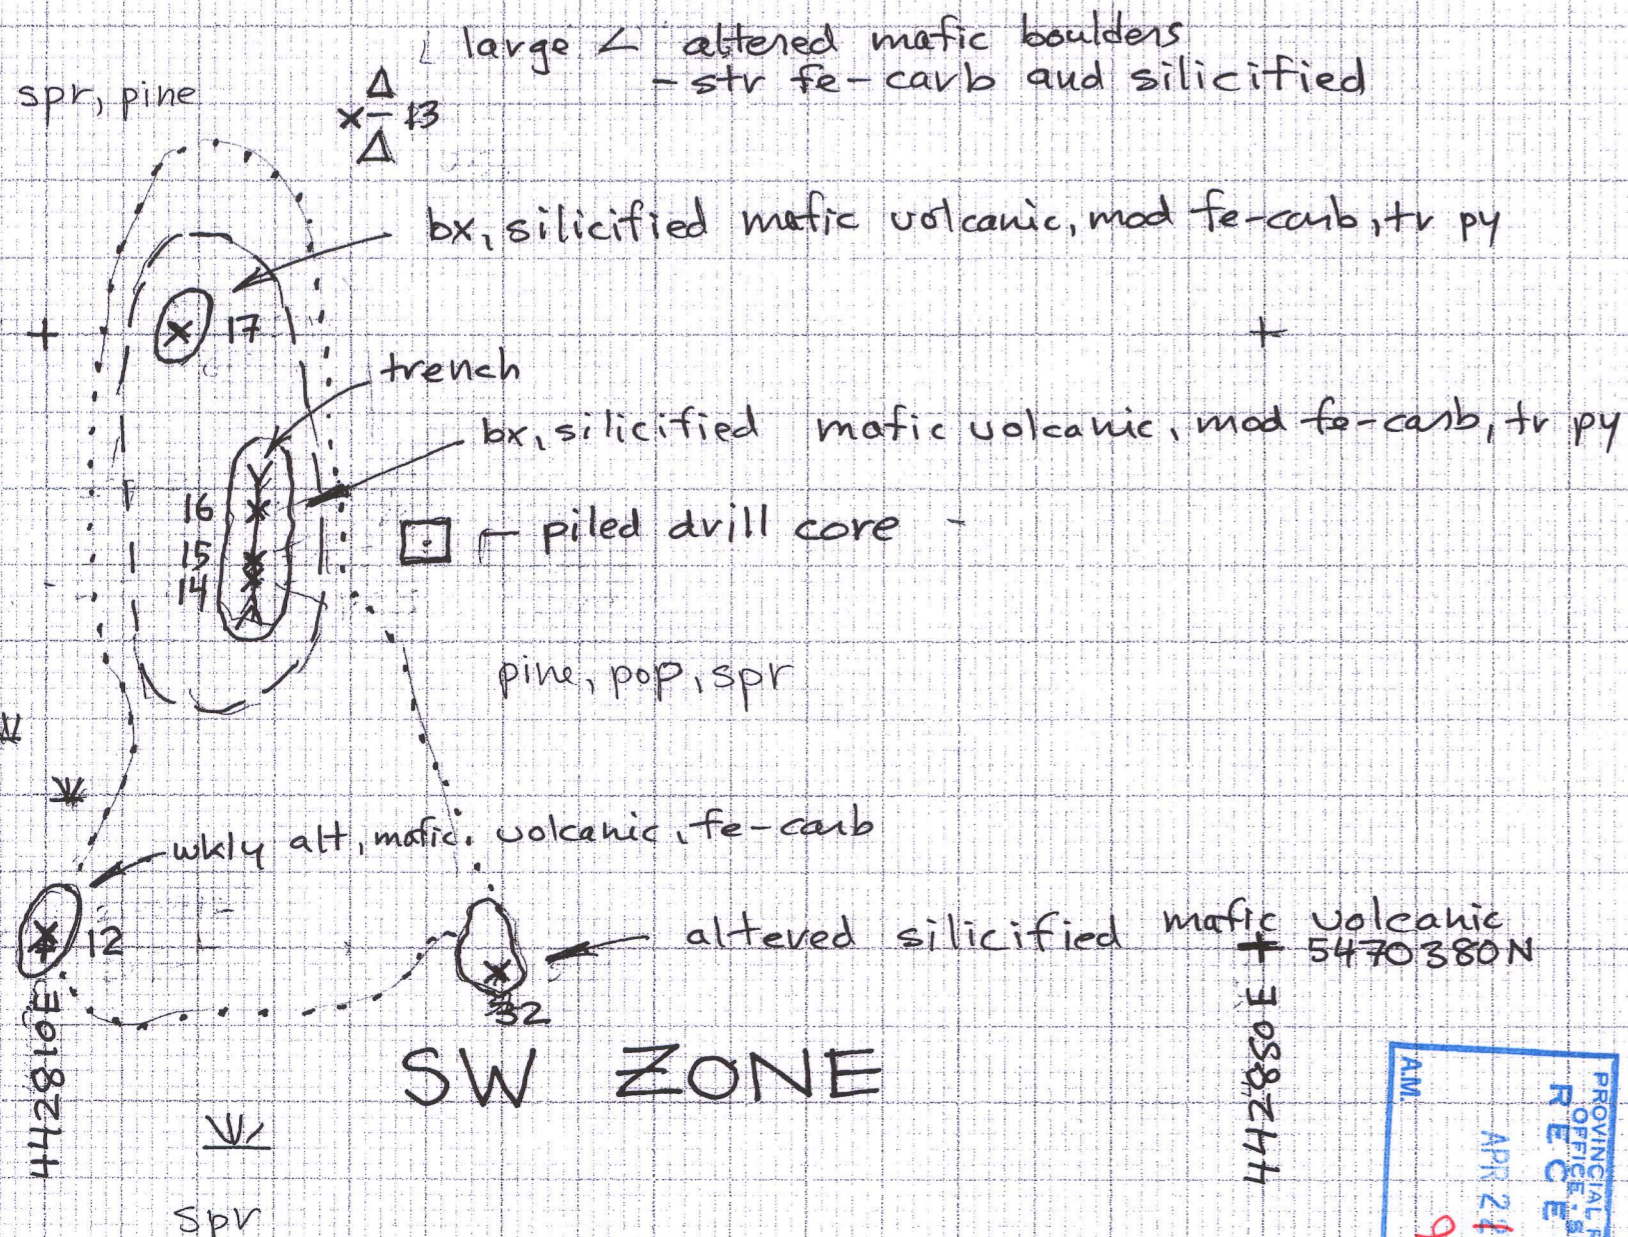 large ∠ altered mafic boulders
- str fe-carb and silicified
spr, pine
13
bx, silicified mafic volcanic, mod fe-carb, tr py
17
trench
bx, silicified mafic volcanic, mod fe-carb, tr py
16
15
14
piled drill core
pine, pop, spr
wkly alt, mafic volcanic, fe-carb
12
altered silicified mafic volcanic
5470380N
32
442810E
442850E
SW ZONE
spr
PROVINCIAL
OFFICE
RECE
APR
A.M.